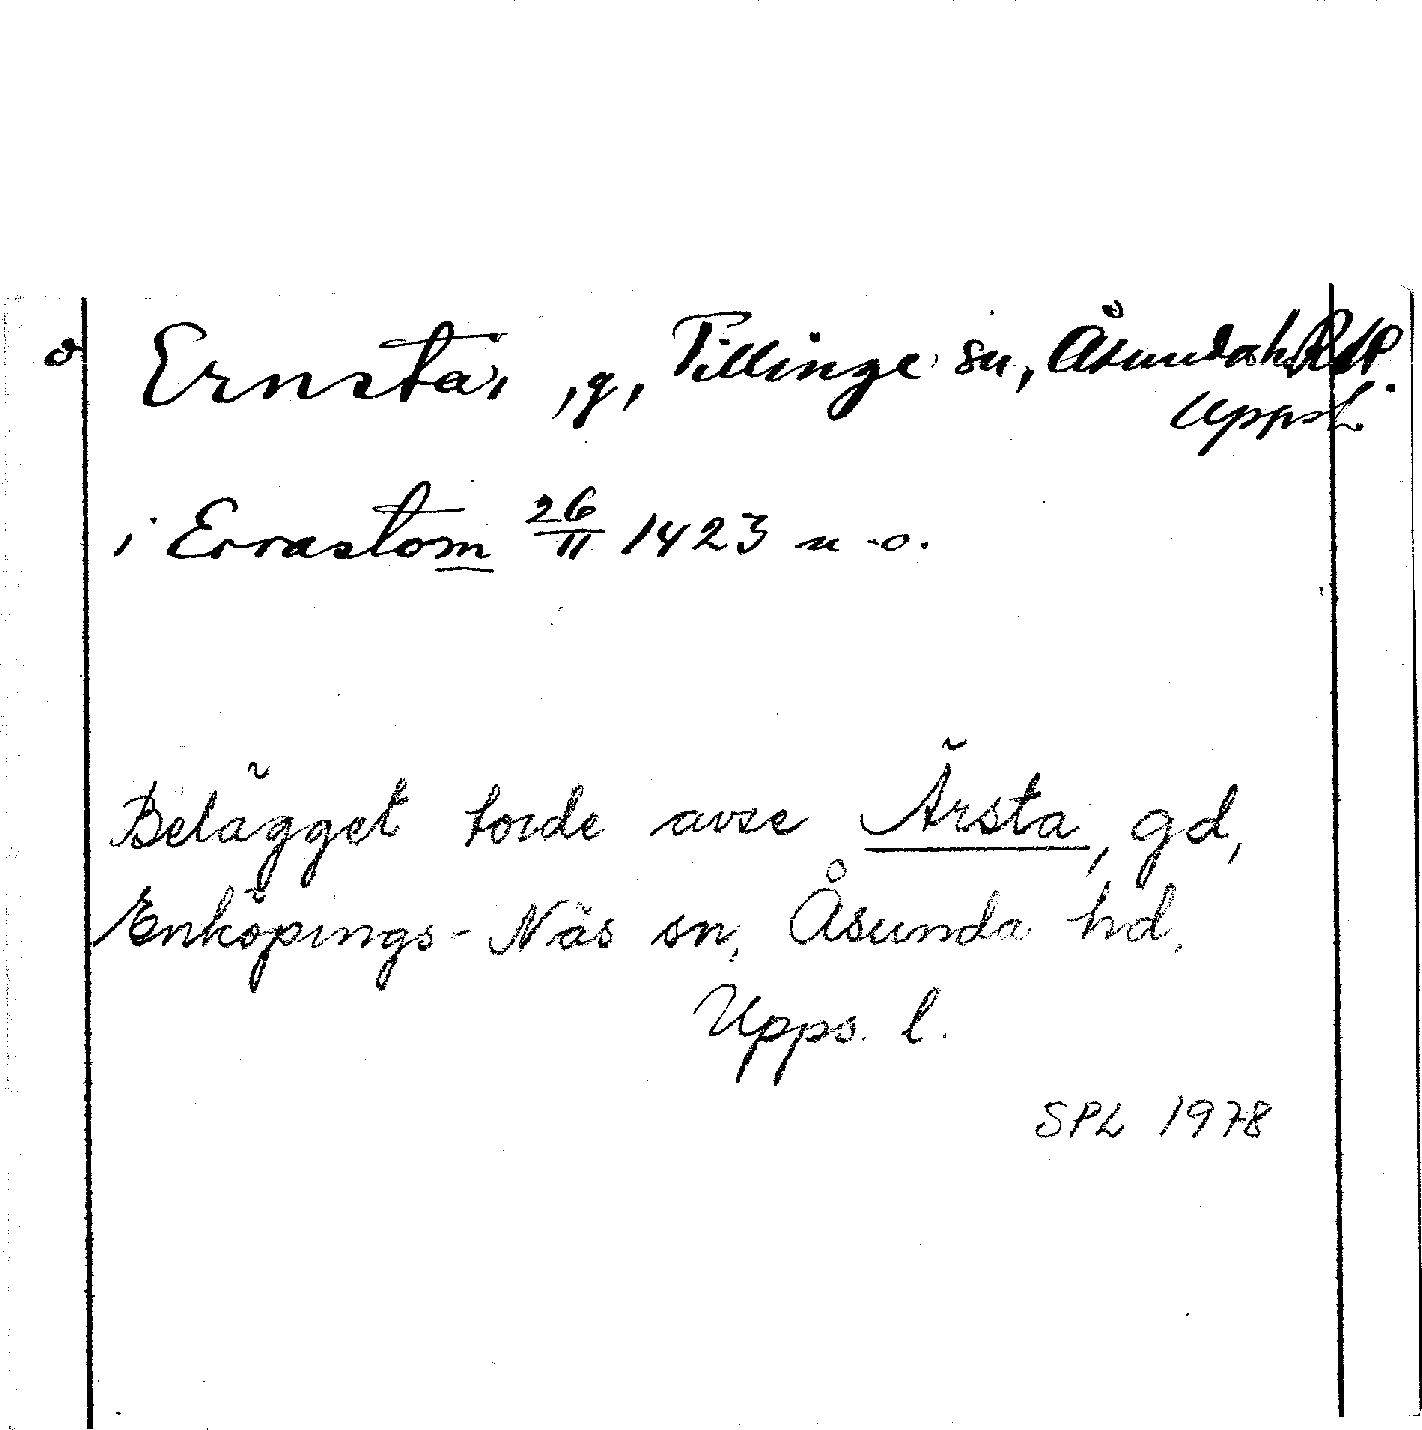 Ernsta, g, Tillinge sn, Åsunda h
Upps. L.
i Errastom 26/11 1423 u. o.
Belägget torde avse Ärsta, gd,
Enköpings-Näs sn, Åsunda hd,
Upps. l.
SPL 1978